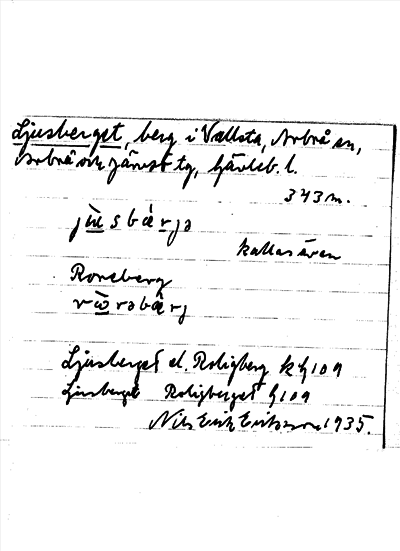 Ljusberget, berg i Vallsta, Arbrå sn,
Arbrå och Järvsö tg, Gävleb. l.
343 m.
jʉ̀sbærjə
kallas även
Roreberg
rωrəbærj
Ljusberget el. Roligberg k h 109
Ljusberget Roligberget h 109
Nils Erik Eriksson 1935.